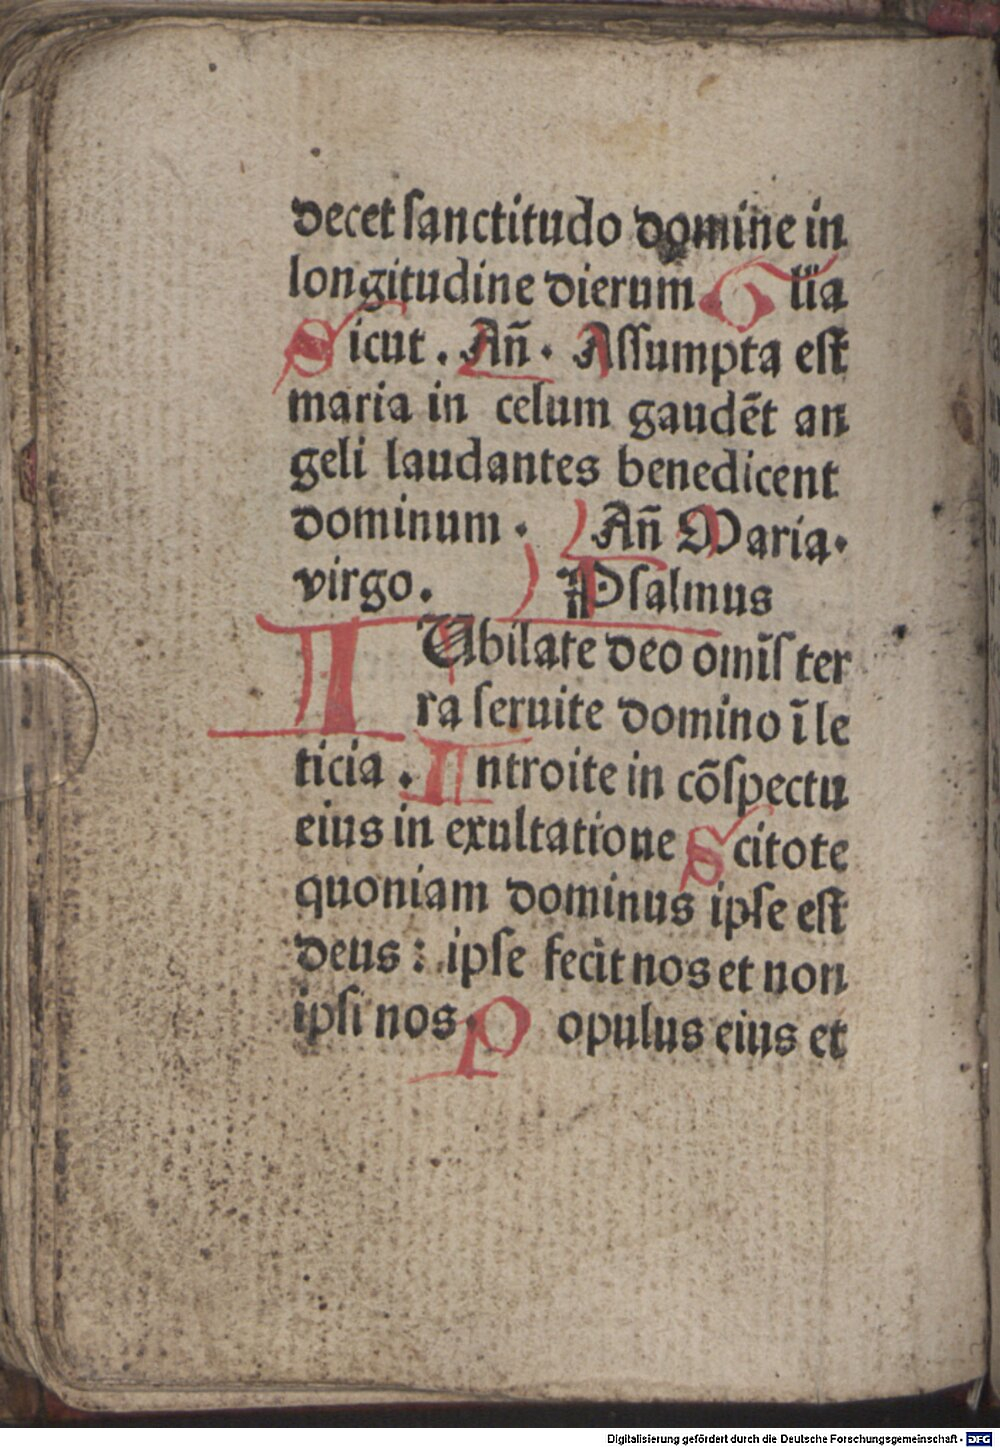 decet sanctitudo domine in
longitudine dierum. Glia
Sicut. Añ. Assumpta est
maria in celum gaudēt an
geli laudantes benedicent
dominum. Añ Maria.
virgo. Psalmus
IUbilate deo omīs ter
ra seruite domino ī le
ticia. Introite in cōspectu
eius in exultatione Scitote
quoniam dominus ipse est
deus: ipse fecit nos et non
ipsi nos. Populus eius et
Digitalisierung gefördert durch die Deutsche Forschungsgemeinschaft - DFG